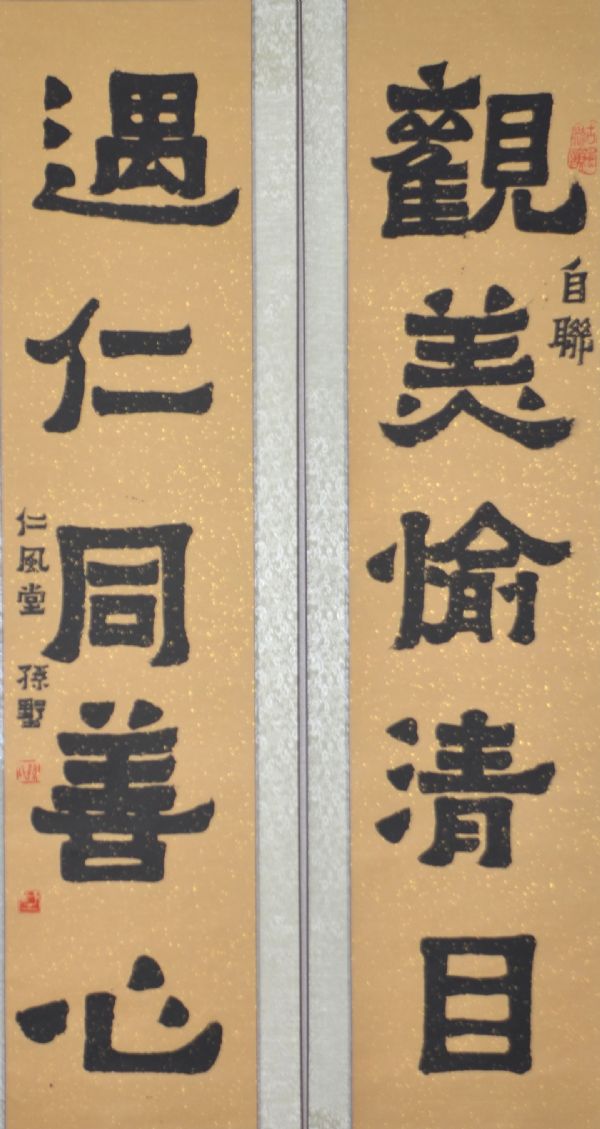 觀美愉清目
自聯
遇仁同善心
仁風堂 孫墅